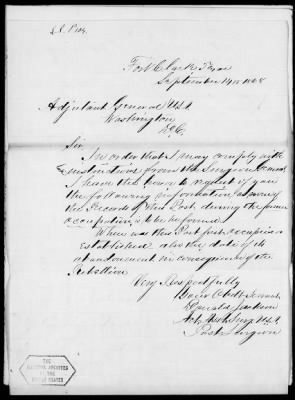 Fort Clark Texas
September 14th 1868
Adjutant General U.S.A.
Washington
D.C.
Sir
In order that I may comply with
instructions from the Surgeon General
I have the honor to request of you
the following information as many
the Records of this Post during the former
occupation is to be found
When was this Post first occupied or
Established also the date of its
abandonment in consequence of the
Rebellion
Very Respectfully
Your Obdt Servant
Jackson
Act Asst Surg U.S.A.
Post Surgeon
THE
NATIONAL ARCHIVES
OF THE
UNITED STATES